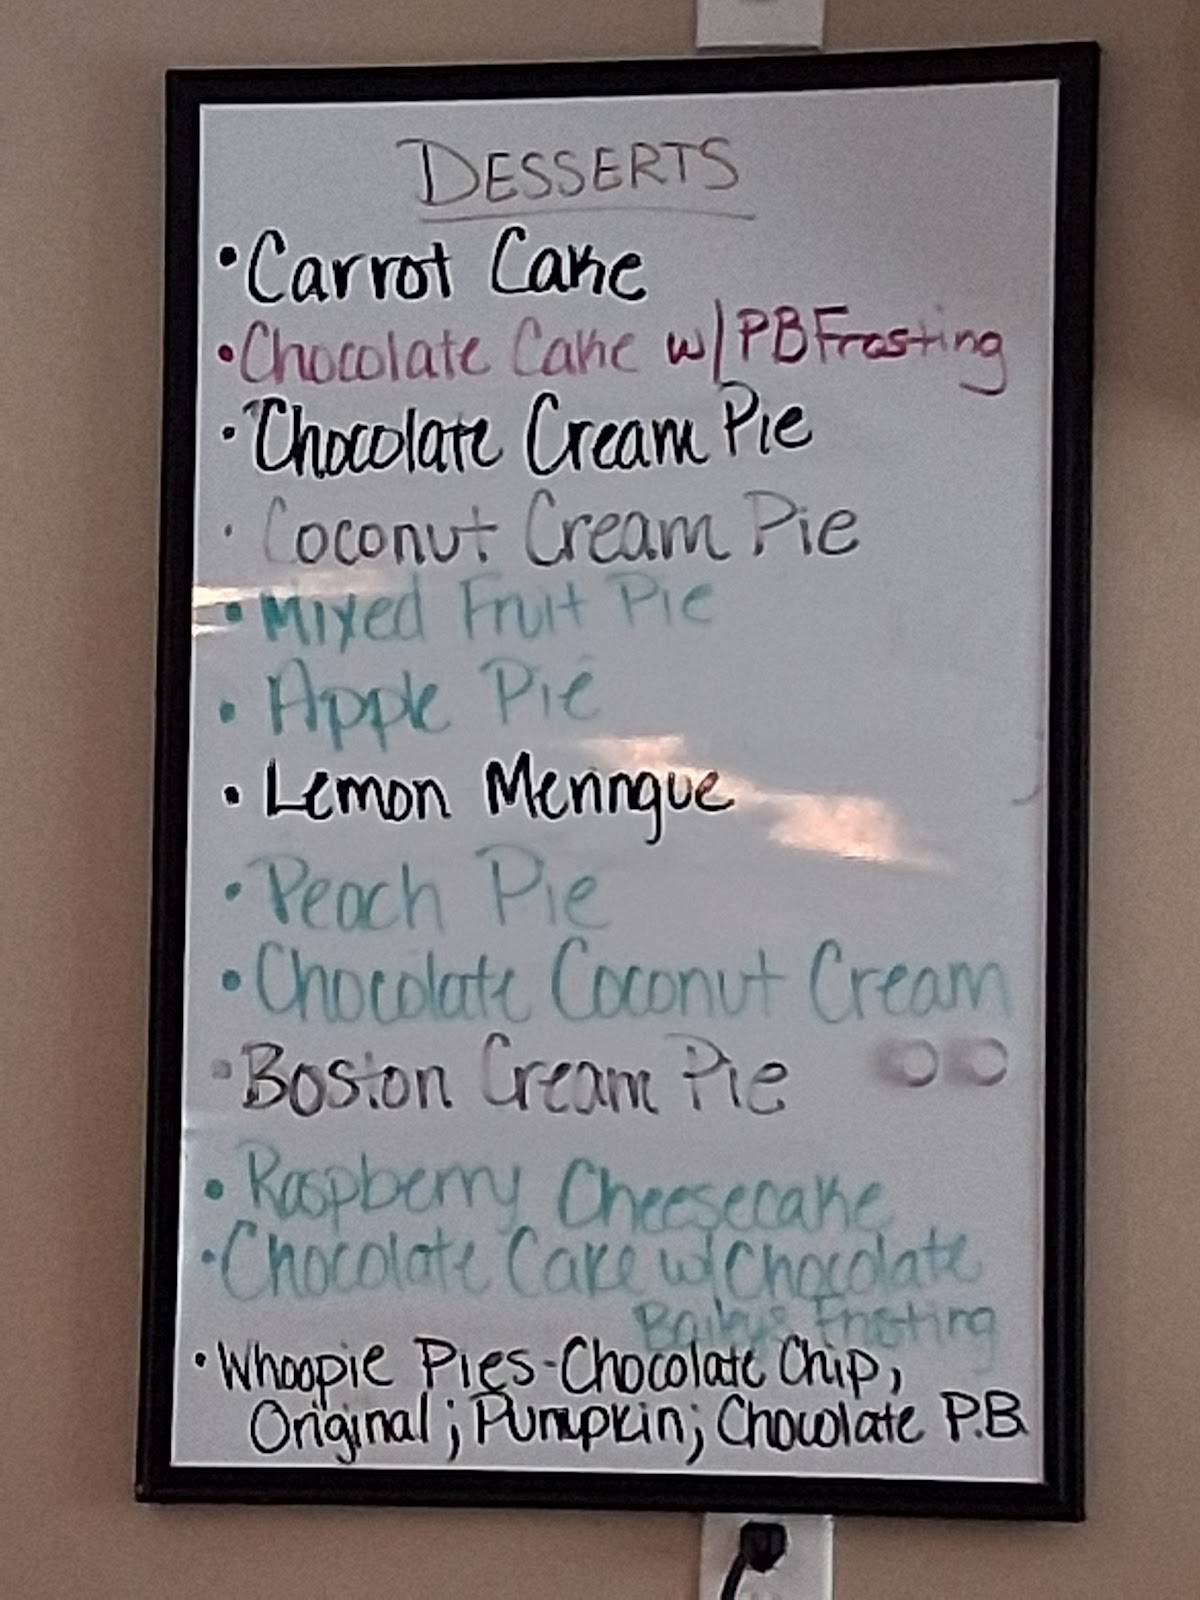 DESSERTS
• Carrot Cake
• Chocolate Cake w/PB Frosting
• Chocolate Cream Pie
• Coconut Cream Pie
• Mixed Fruit Pie
• Apple Pie
• Lemon Meringue
• Peach Pie
• Chocolate Coconut Cream
• Boston Cream Pie
• Raspberry Cheesecake
• Chocolate Cake w/Chocolate
Baileys Frosting
• Whoopie Pies-Chocolate Chip,
Original; Pumpkin; Chocolate P.B.